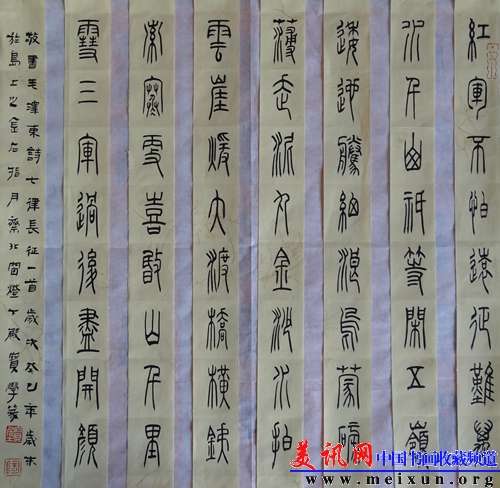 紅軍不怕遠征難萬
水千山祇等閑五嶺
逶迤騰細浪烏蒙磅
礴走泥丸金沙水拍
雲崖暖大渡橋橫鐵
索寒更喜岷山千里
雪三軍過後盡開顏
敬書毛澤東詩七律長征一首歲次癸巳年歲末
於島上之金石指月齋北窗燈下殿寶學篆
美讯网 中国书画收藏频道
www.meixun.org